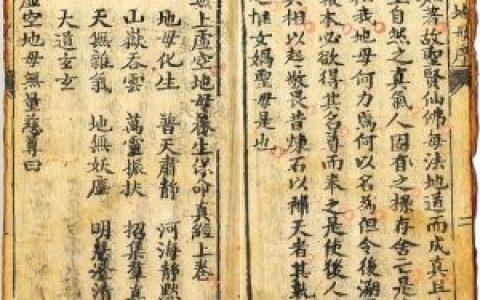 地母序
二
故聖賢仙佛每法地道而成真且
自然之真氣人固有之操存舍亡是
我地母何力焉何以名為但令後湖
報本必欲得其名尊而奉之是使後人
其相以起敬畏昔煉石以補天者其孰
地惟女媧聖母是也
無上虛空地母養生保命真經上卷
地母化生 普天肅靜 河海靜默
山嶽吞雲 萬靈振扶 招集羣真
天無雜氣 地無妖塵 明慧澄清
大道玄玄
虛空地母無量慈尊曰